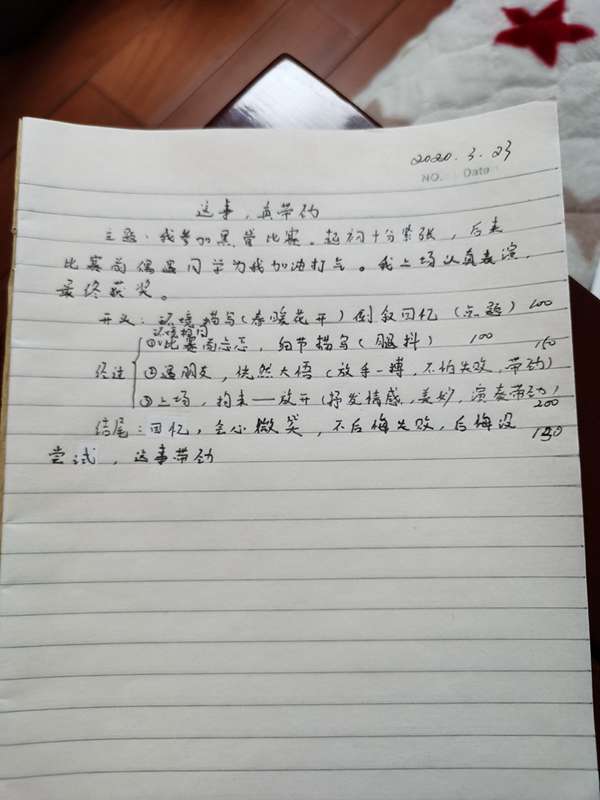 2020.3.23
NO. Date
这事,真带劲
主题:我参加黑管比赛。起初十分紧张,后来
比赛前偶遇同学为我加油打气。我上场认真表演,
最终获奖。
开头:环境描写(春暖花开)倒叙回忆(点题) 100
环境描写
①比赛前忐忑,细节描写(腿抖) 100 150
经过 ②遇朋友,恍然大悟(放手一搏,不怕失败,带劲)
③上场,拘束——放开(抒发情感,美妙,演奏带劲)
200
结尾:回忆,会心微笑,不后悔失败,后悔没 150
尝试,这事带劲